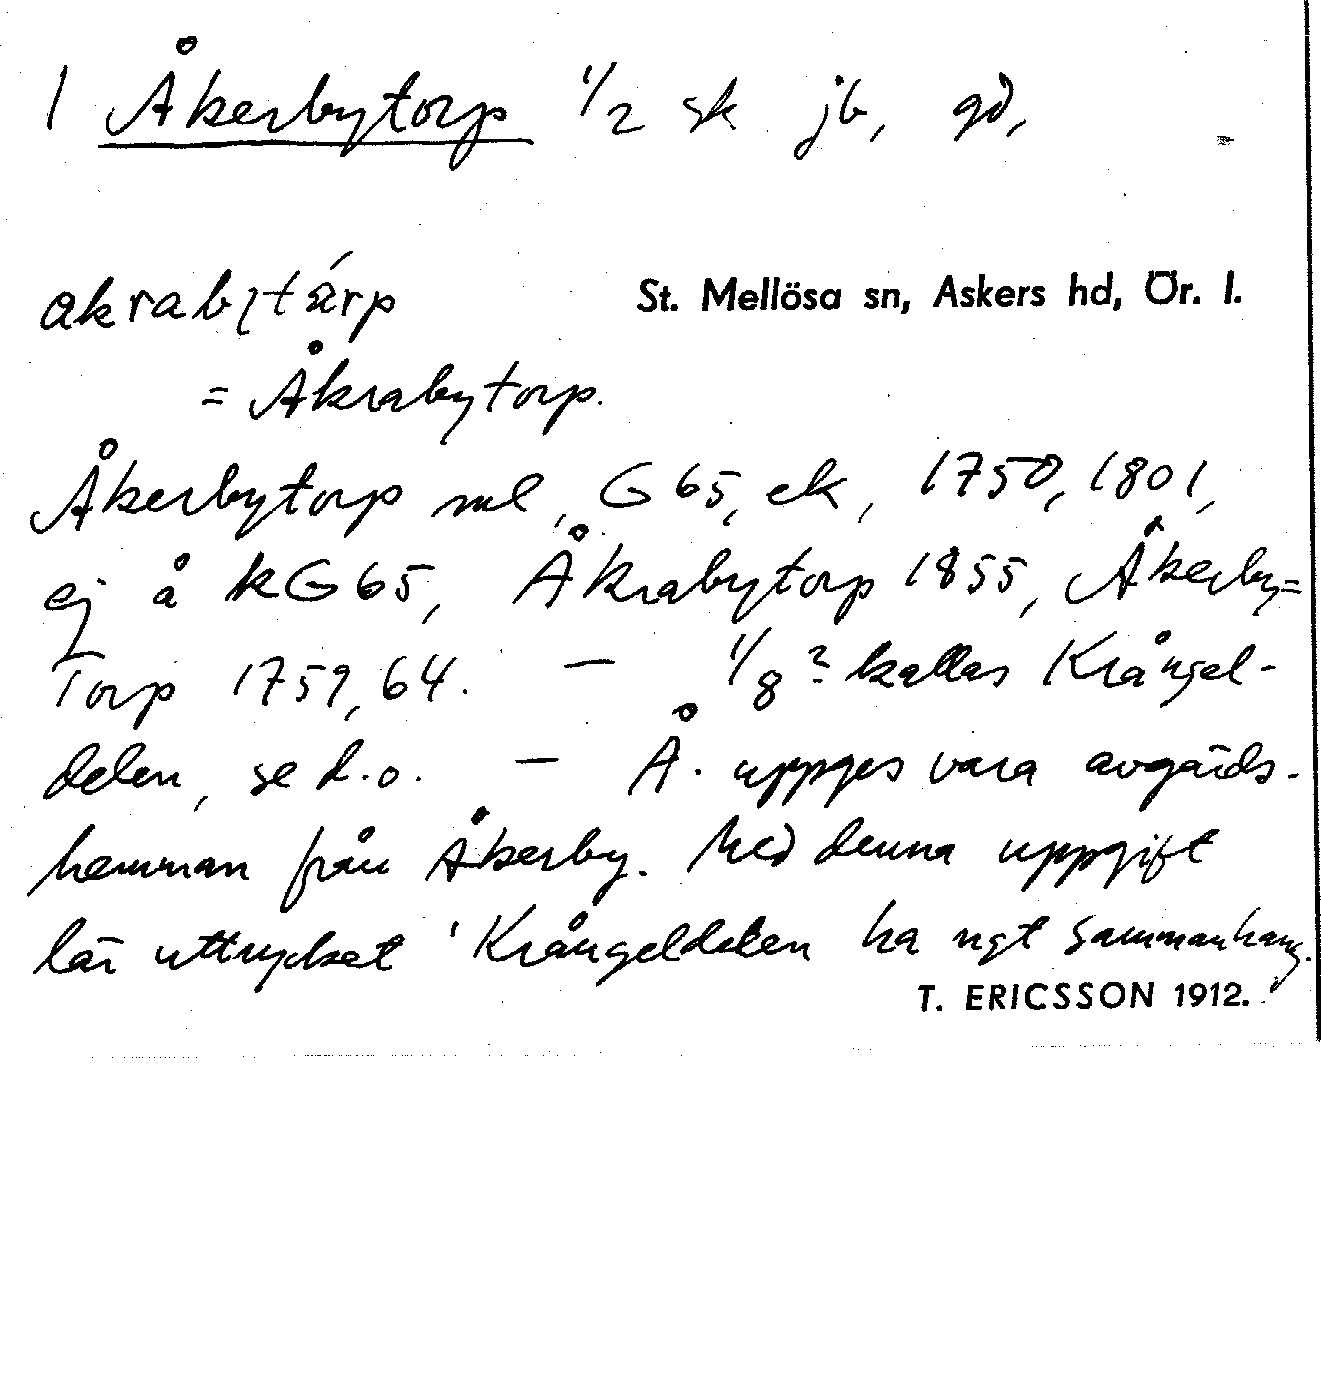 1 Åkerbytorp 1/2 sk jb, gd,
akrabytårp
St. Mellösa sn, Askers hd, Ör. l.
= Åkrabytorp.
Åkerbytorp ml, G 65, ek, 1750, 1801,
ej å KG 65, Åkrabytorp 1855, Åkerby=
Torp 1759, 64. — 1/8? kallas Krångel-
delen, se d.o. — Å. uppges vara avgärds-
hemman från Åkerby. Med denna uppgift
lär uttrycket 'Krångeldelen ha ngt sammanhang.
T. ERICSSON 1912.